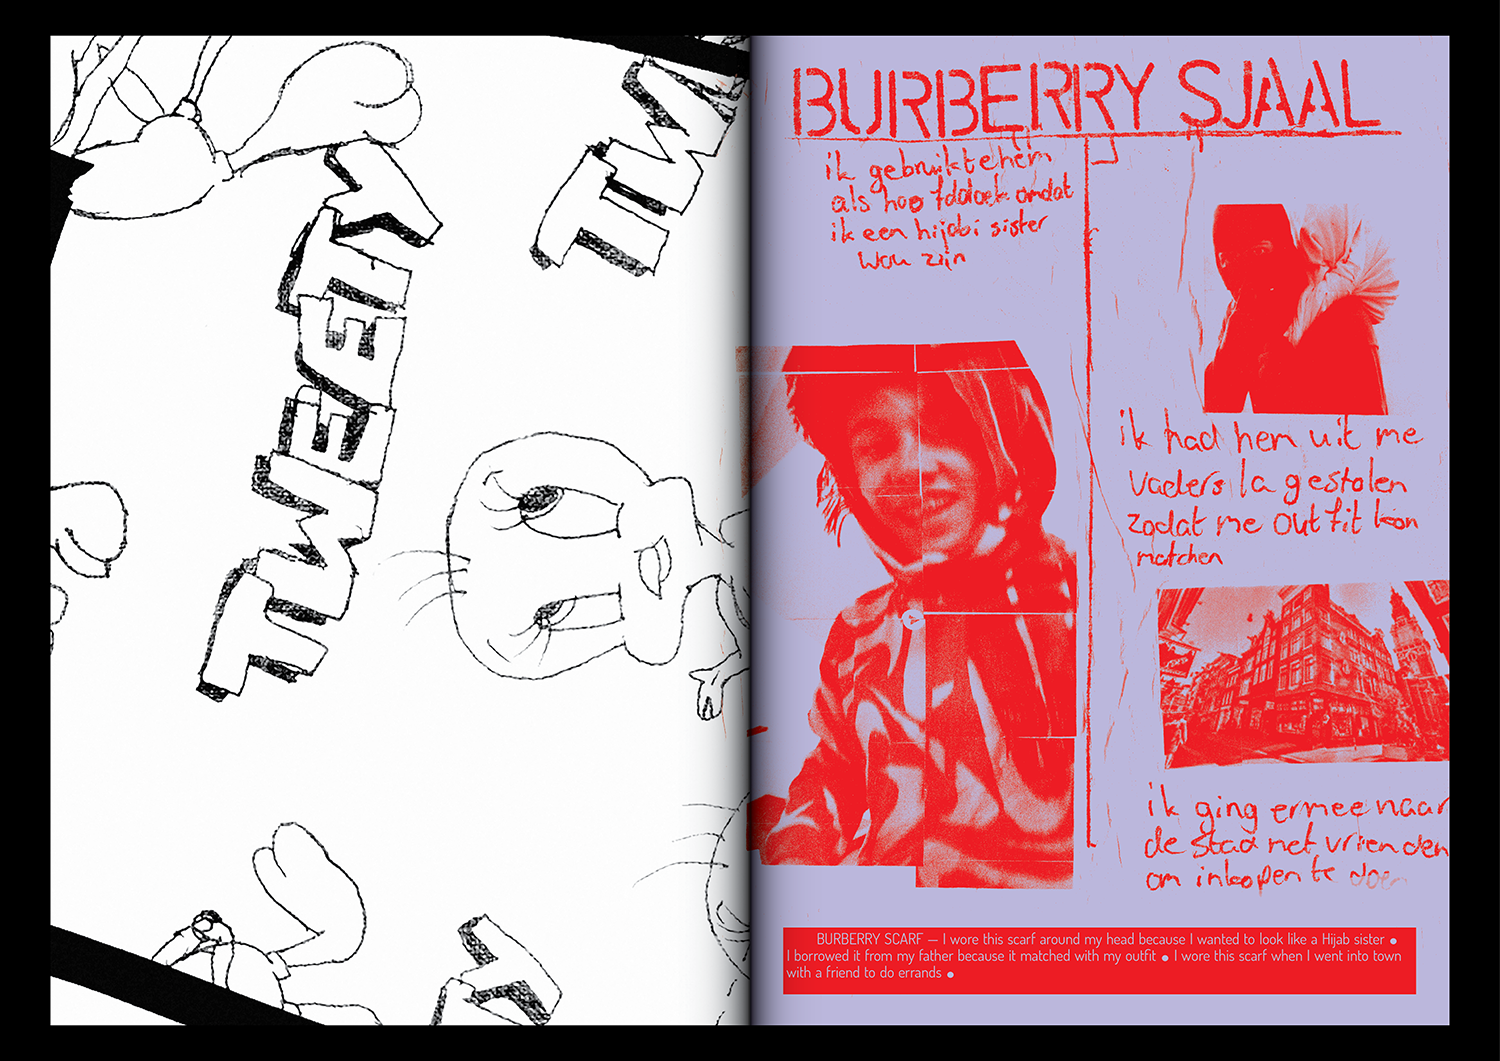 TWEETY
TW
TY
BURBERRY SJAAL
ik gebruikte hem
als hoofddoek omdat
ik een hijabi sister
wou zijn
ik had hem uit me
vaders la gestolen
zodat me outfit kon
matchen
ik ging ermee naar
de stad met vrienden
om inkopen te doen
BURBERRY SCARF — I wore this scarf around my head because I wanted to look like a Hijab sister ●
I borrowed it from my father because it matched with my outfit ● I wore this scarf when I went into town
with a friend to do errands ●